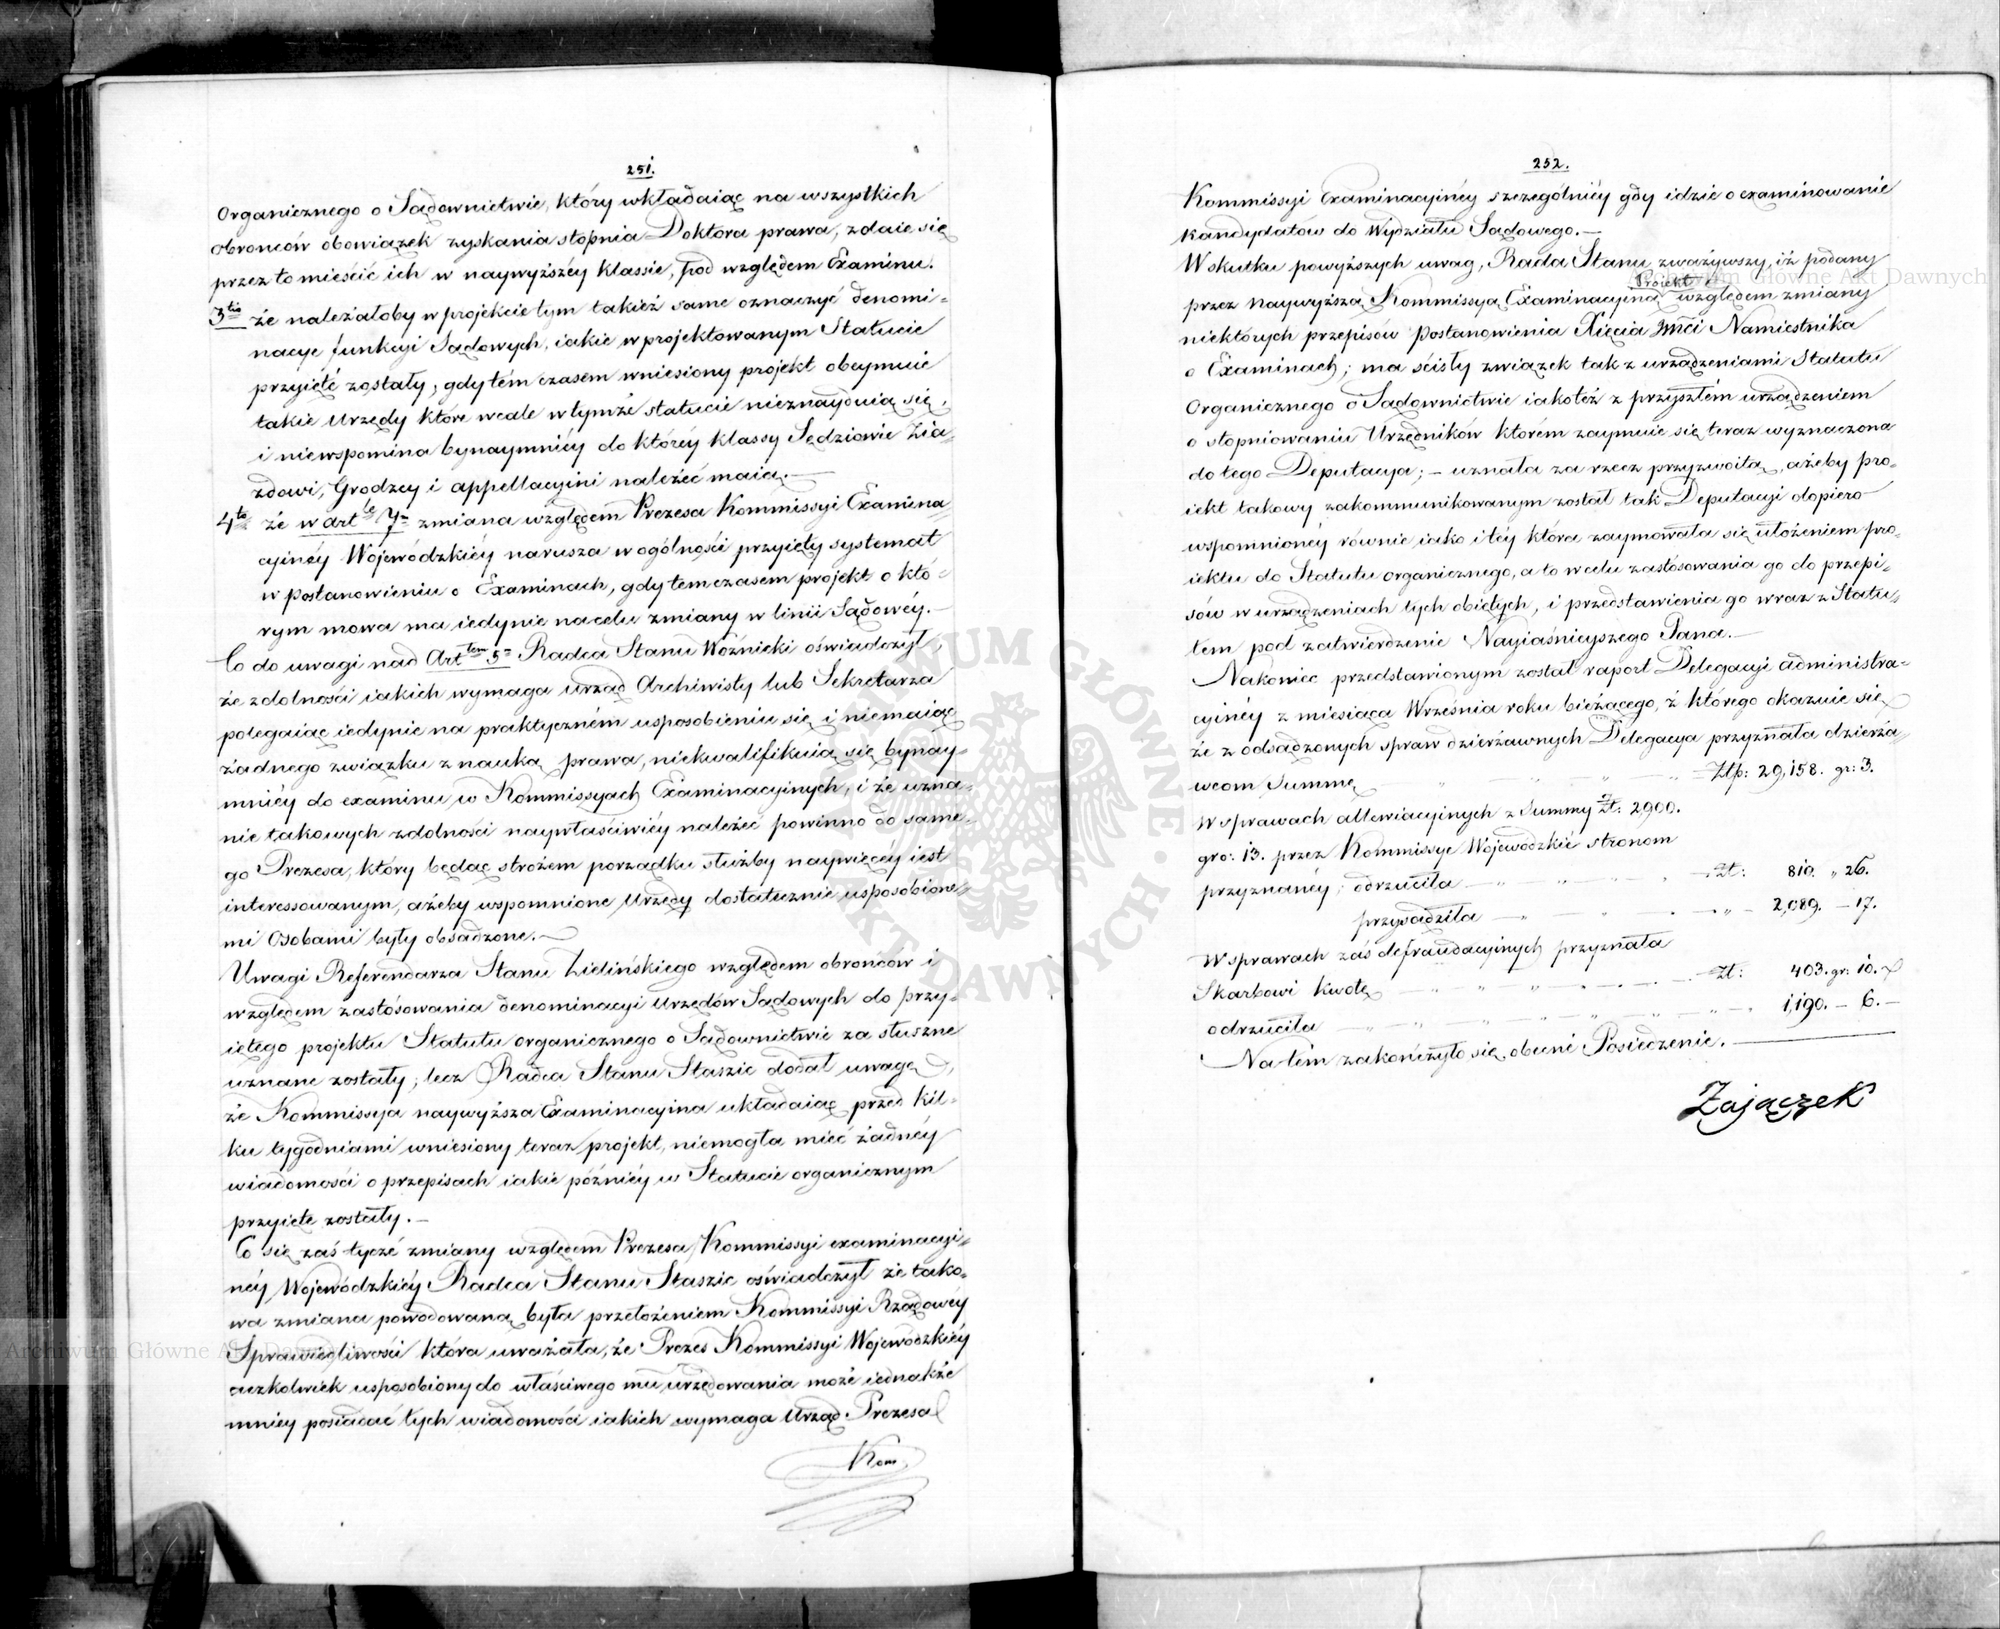 251.
Organicznego o Sądownictwie, który wkładaiąc na wszystkich
obrońców obowiązek zyskania stopnia Doktora prawa, zdaie się
przez to mieścić ich w naywyższéy klassie, pod względem Examinu.
3tio że należałoby w projekcie tym takież same oznaczyć denomi-
nacye funkcyi Sądowych, iakie w projektowanym Statucie
przyięte zostały; gdy tém czasem wniesiony projekt obeymuie
takie Urzędy które wcale w tymże statucie nieznayduią się,
i niewspomina bynaymniéy do któréy klassy Sędziowie Zia-
zdowi, Grodzcy i appellacyini należeć maią.—
4to że w artle 7m zmiana względem Prezesa Kommissyi Examina-
cyinéy Wojewódzkiéy narusza w ogólności przyięty systemat
w postanowieniu o Examinach, gdy tem czasem projekt o któ-
rym mowa ma iedynie na celu zmiany w linii Sądowéy.—
Co do uwagi nad Arttem 5m Radca Stanu Woźnicki oświadczył,
że zdolności iakich wymaga urząd Archiwisty lub Sekretarza
polegaiąc iedynie na praktyczném usposobieniu się i niemaiąc
żadnego związku z nauką prawa, niekwalifikuią się bynay-
mniéy do examinu w Kommissyach Examinacyinych, i że uzna-
nie takowych zdolności naywłaściwiéy należeć powinno do same-
go Prezesa, który będąc stróżem porządku służby naywięcéy iest
interessowanym, ażeby wspomnione Urzędy dostatecznie usposobione-
mi Osobami były obsadzone.—
Uwagi Referendarza Stanu Zielińskiego względem obrońców i
względem zastósowania denominacyi Urzędów Sądowych do przy-
iętego projektu Statutu organicznego o Sądownictwie za słuszne
uznane zostały; lecz Radca Stanu Staszic dodał uwagę,
że Kommissya naywyższa Examinacyina układaiąc przed kil-
ku tygodniami wniesiony teraz projekt, niemogła mieć żadnéy
wiadomości o przepisach iakie późniéy w Statucie organicznym
przyięte zostały.—
Co się zaś tycze zmiany względem Prezesa Kommissyi examinacyi-
néy Wojewódzkiéy Radca Stanu Staszic oświadczył że tako-
wa zmiana powodowaną była przełożeniem Kommissyi Rządowéy
Sprawiedliwości która uważała, że Prezes Kommissyi Wojewódzkiéy
aczkolwiek usposobiony do właściwego mu urzędowania może iednakże
mniey posiadać tych wiadomości iakich wymaga Urząd Prezesa
Kom
252.
Kommissyi Examinacyinéy szczególniéy gdy idzie o examinowanie
Kandydatów do Wydziału Sądowego.—
W skutku powyższych uwag, Rada Stanu zważywszy, iż podany
Projekt
przez Naywyższą Kommissyą Examinacyiną względem zmiany
niektórych przepisów Postanowienia Xięcia Jmći Namiestnika
o Examinach; ma ścisły związek tak z urządzeniami Statutu
Organicznego o Sądownictwie iakotéż z przyszłém urządzeniem
o stopniowaniu Urzędników którém zaymuie się teraz wyznaczona
do tego Deputacya; – uznała za rzecz przyzwoitą, ażeby pro-
iekt takowy zakommunikowanym został tak Deputacyi dopiero
wspomnionéy równie iako i téy która zaymowała się ułożeniem pro-
iektu do Statutu organicznego, a to w celu zastósowania go do przepi-
sów w urządzeniach tych obiętych, i przedstawienia go wraz z Statu-
tem pod zatwierdzenie Nayiaśnieyszego Pana.—
Nakoniec przedstawionym został raport Delegacyi administra-
cyinéy z miesiąca Września roku bieżącego, z którego okazuie się
że z odsądzonych spraw dzierżawnych Delegacya przyznała dzierża-
wcom Summę — Złp: 29,158. gr: 3.
W sprawach allewiacyinych z Summy Zł: 2900.
gro: 13. przez Kommissye Wojewódzkie stronom
przyznanéy, odrzuciła — Zł: 810. „ 26.
przysądziła — „ 2,089. – 17.
W sprawach zaś defraudacyinych przyznała
Skarbowi kwotę — Zł: 403. gr: 10.
odrzuciła — 1,190. – 6.—
Na tém zakończyło się obecne Posiedzenie.—
Zajączek
ARCHIWUM GŁÓWNE AKT DAWNYCH
Archiwum Główne Akt Dawnych
Archiwum Główne Akt Dawnych